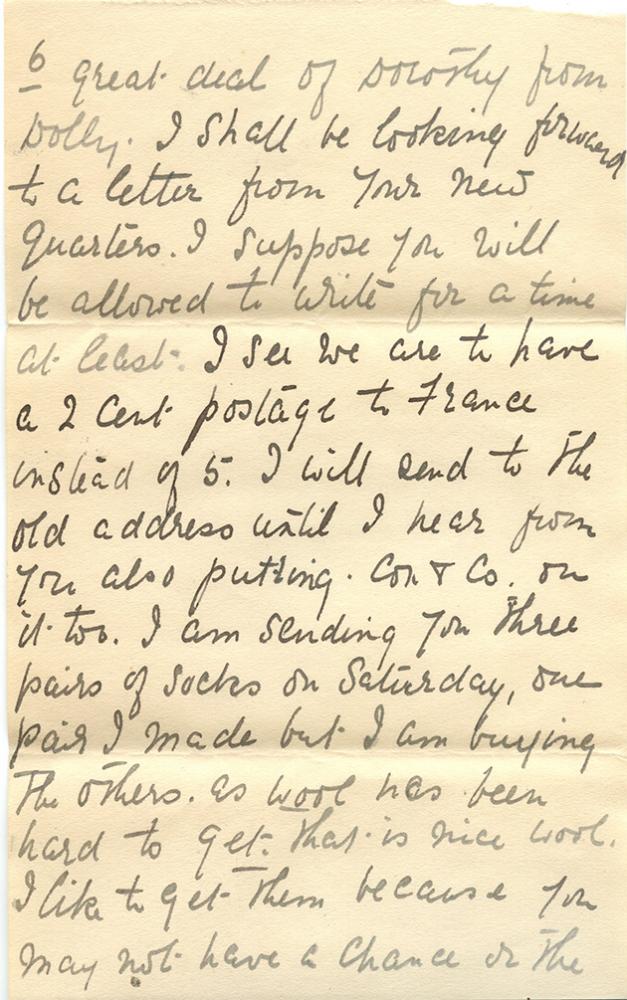 6 great deal of Dorothy from
Dolly. I shall be looking forward
to a letter from your new
quarters. I suppose you will
be allowed to write for a time
at least. I see we are to have
a 2 cent postage to France
instead of 5. I will send to the
old address until I hear from
you also putting. Con & Co. on
it too. I am sending you three
pairs of socks on Saturday, one
pair I made but I am buying
the others. as wool has been
hard to get. that is nice wool.
I like to get them because you
may not have a chance or the